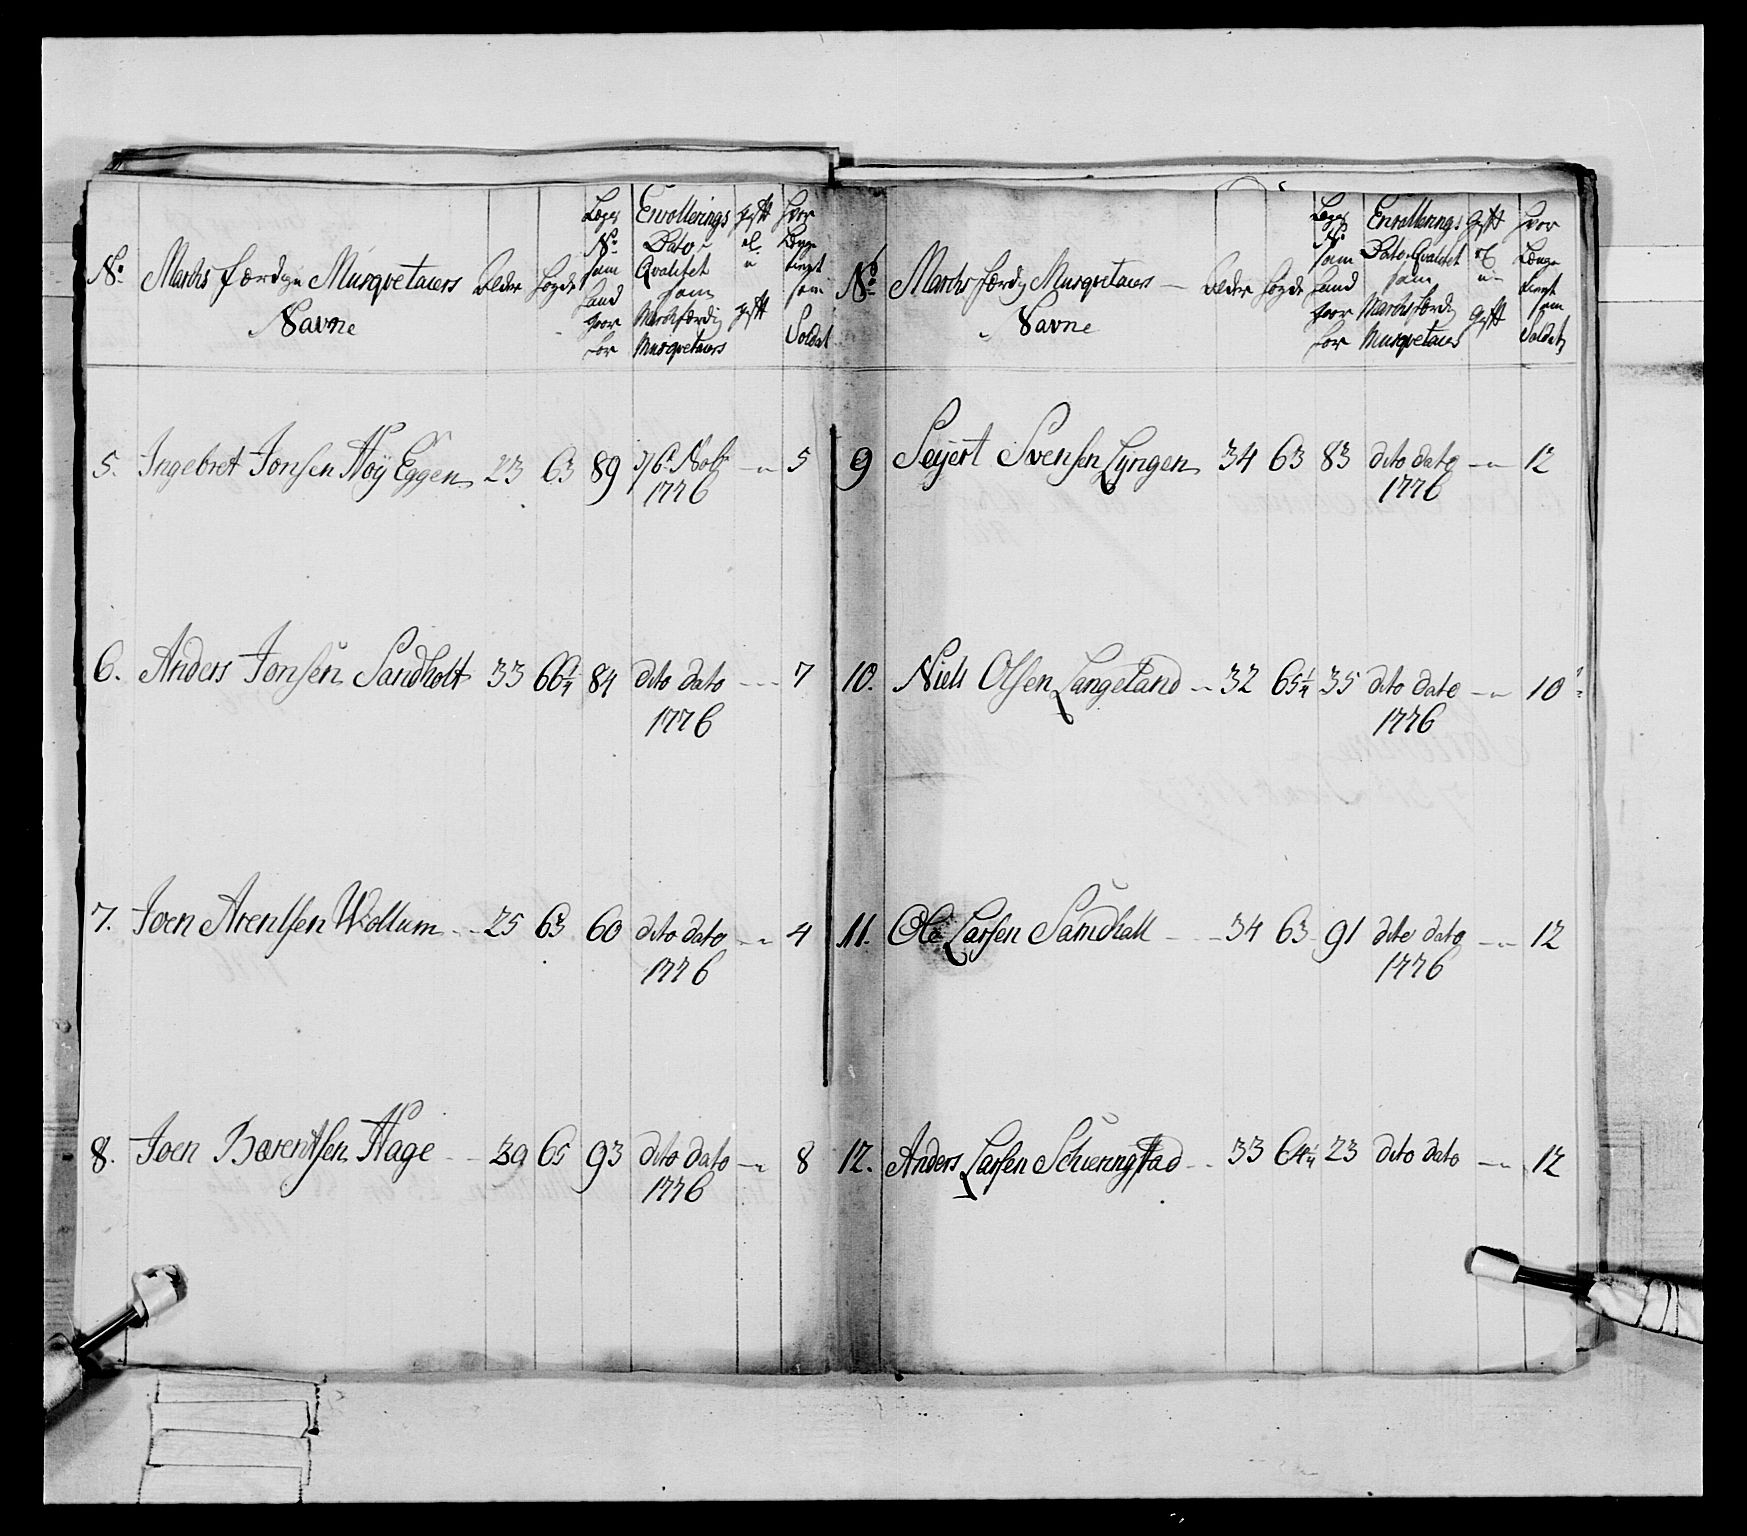 No Marchs færdige Musqvetairs Navne Alder Høyde Lægs No som Hand staar for Enrollerings Dato Qvalitet som Marchfærdig Musqvetairs gift el. u gift Hvor Længe tient som Soldat
5. Ingebret Jonsen Høy Eggen 23 63 89 1776 5
6. Anders Jonsen Sandholt 33 66¼ 84 dito dato 7
1776
7. Joen Arentsen Wollum 25 63 60 dito dato 4
1776
8. Joen Bærentsen Hage 39 65 93 dito dato 8
1776
No Marchs færdig Musqvetairs Navne Alder Høyde Lægs No som Hand staar for Enrollerings Dato Qvalitet som Marchfærdig Musqvetairs Gift el u Gift Hvor Længe tient som Soldat
9 Sejert Svensen Lyngen 34 63 83 dito dato 12
1776
10. Niels Olsen Langeland 32 65¼ 35 dito dato 10
1776
11. Ole Larsen Sandhall 34 63 91 dito dato 12
1776
12. Anders Larsen Schierringstad 33 64¼ 23 dito dato 12